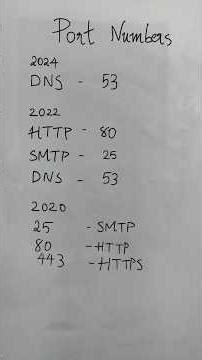 Port Numbers
2024
DNS - 53
2022
HTTP - 80
SMTP - 25
DNS - 53
2020
25 - SMTP
80 - HTTP
443 - HTTPS